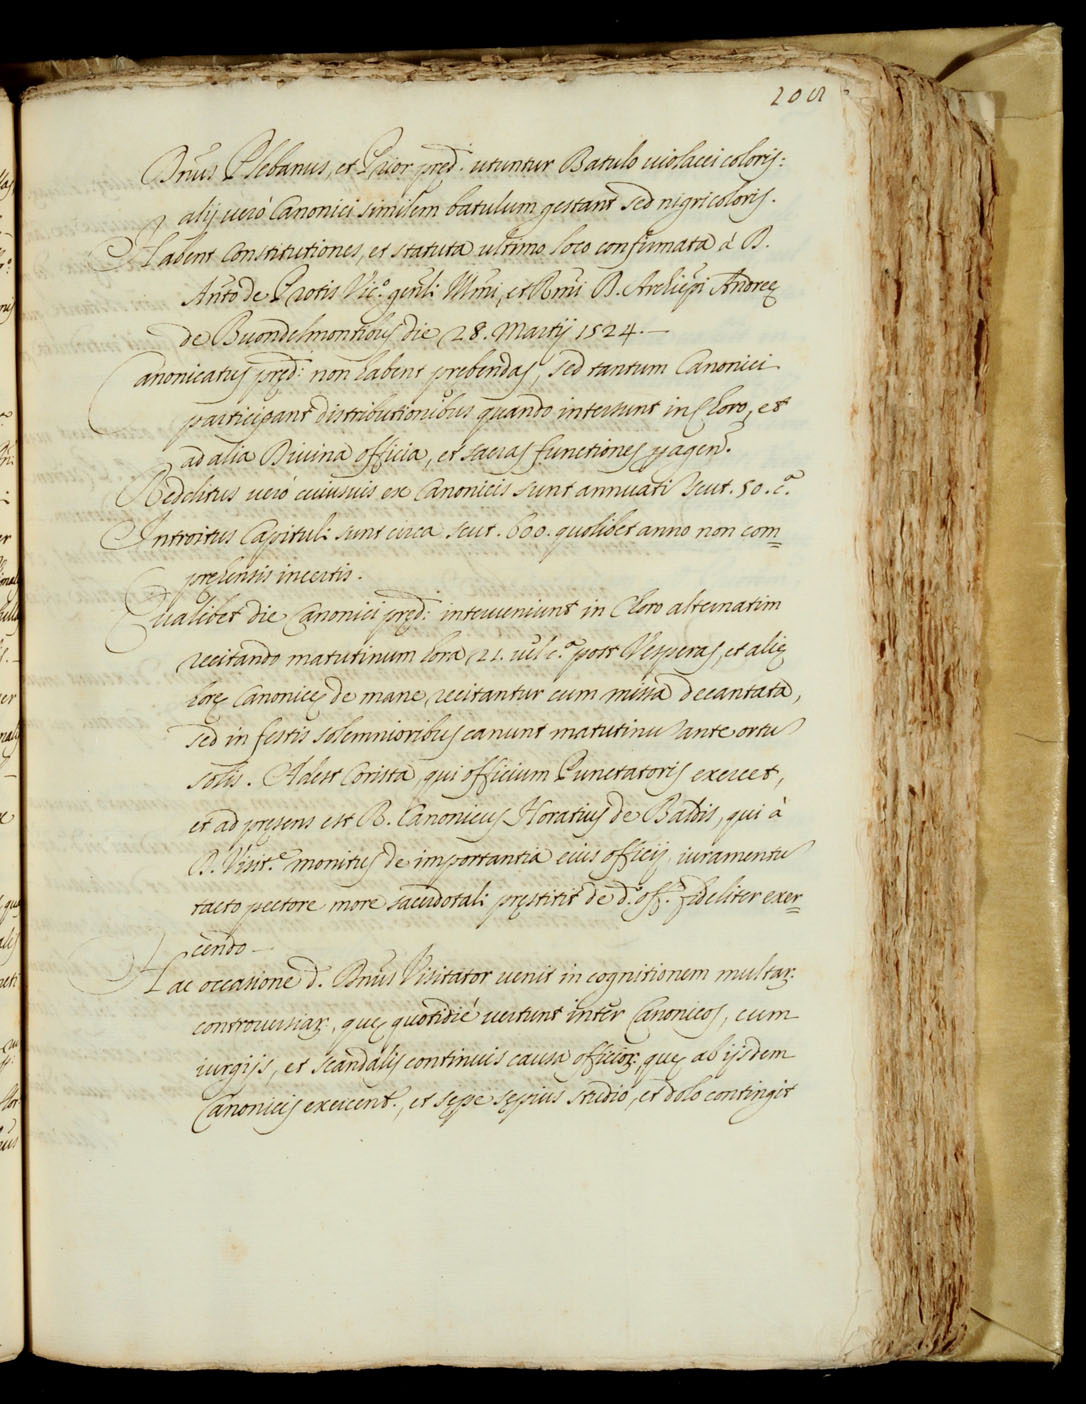 201
Dnus Plebanus, et Prior pred. utuntur Batulo violacei coloris:
alij veró Canonici similem batulum gestant sed nigri coloris.
Habent Constitutiones, et statuta ultimo loco confirmata á R.
Anto de Protis Vic.º gen̄li Illmi, et Rmi D. Archiepi Andreę
de Buondelmontibus die 28. Martij 1524.
Canonicatus pręd: non habent prębendas, sed tantum Canonici
participant distributionibus quando intersunt in Choro, et
ad alia Divina officia, et sacras functiones pagen.
Redditus veró cuiusvis ex Canonicis sunt annuati scut. 50. c.ª
Introitus Capituli sunt circa scut. 600. quolibet anno non com=
prehensis incertis.
Qualibet die Canonici pręd: interveniunt in Choro alternatim
recitando matutinum hora 21. vel c.ª post Vesperas, et alię
horę Canonicę de mane recitantur cum missa decantata,
sed in festis solemnioribus canunt matutinu ante ortu
solis. Adest Corista, qui officium Punctatoris exercet,
et ad pręsens est R. Canonicus Horatius de Baldis, qui à
D. Visit.e monitus de importantia eius officij, iuramentu
tacto pectore more sacerdotali pręstitit de d.º off.º fideliter exer=
cendo
Hac occasione d. Dnus Visitator venit in cognitionem multar:
controversiar:, quę quotidié vertunt inter Canonicos, cum
iurgijs, et scandalis continuis causa officior:, quę ab ijsdem
Canonicis exercent., et sępe sępius studio, et dolo contingit